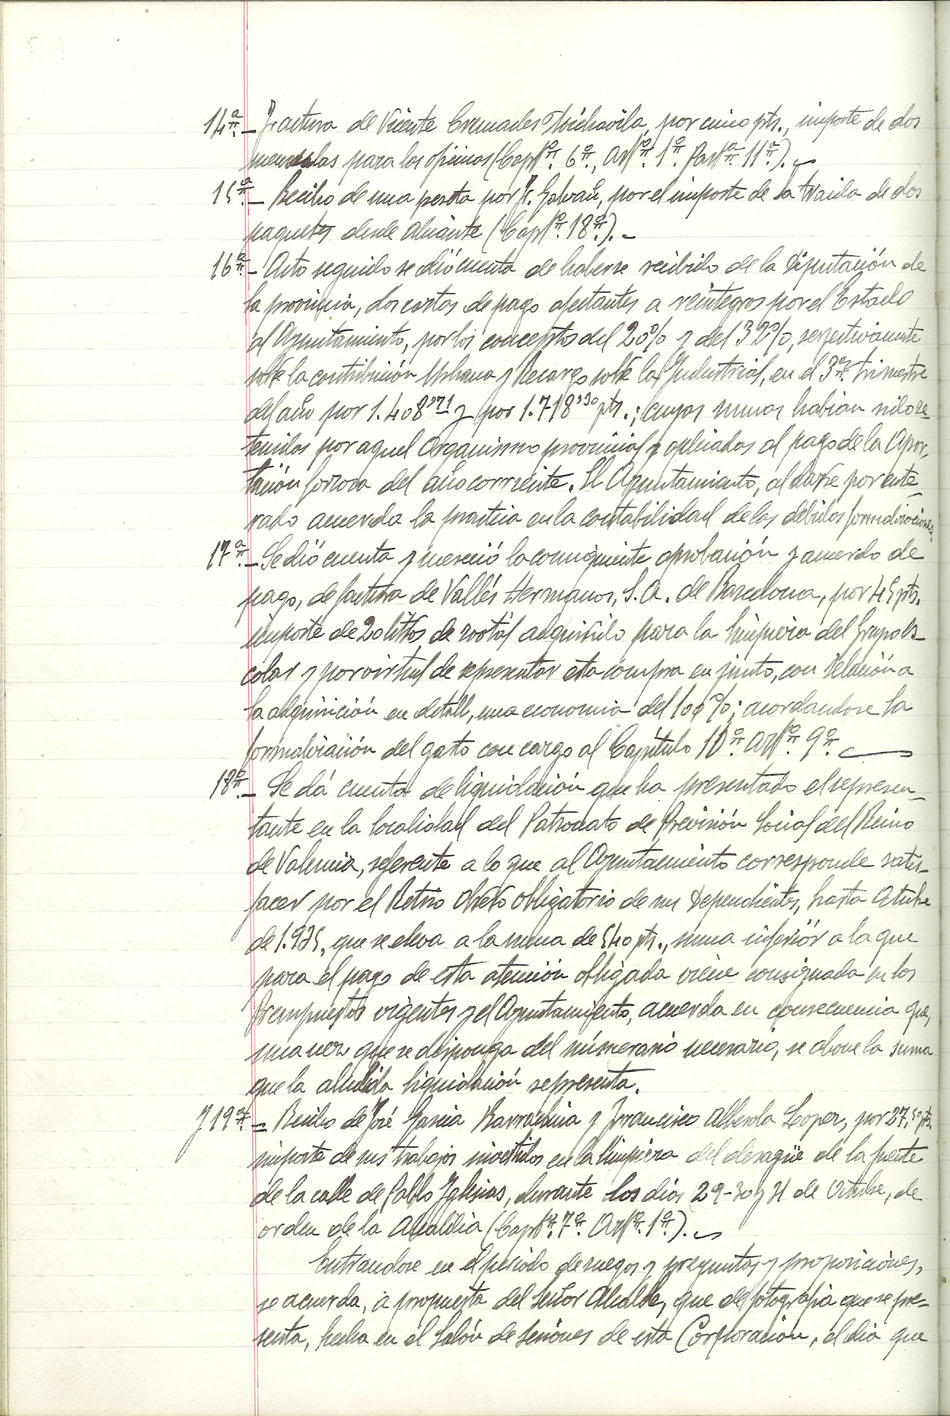 14ª.- Factura de Vicente Cremades Michavila, por cinco pts., importe de dos
para los opimos (Capº. 6º., Artº. 1º. Partª. 11ª.).-
15ª.- Recibo de una peseta por J. Galvañ, por el importe de la traida de dos
paquetes desde Alicante (Capº. 18º.).-
16ª.- Acto seguido se dió cuenta de haberse recibido de la Diputación de
la provincia, dos cartas de pago afectantes a reintegros por el Estado
al Ayuntamiento, por los conceptos del 20% y del 32%, respectivamente
sobre la contribución Urbana y Recargo sobre la Industrial, en el 3er. trimestre
del año por 1.408'71 y por 1.718'30 pts.; cuyas sumas habian sido re-
tenidas por aquel Organismo provincial y aplicadas al pago de la Apor-
tación forzosa del año corriente. El Ayuntamiento, al darse por ente-
rado acuerda la practica en la contabilidad de las debidas formalizaciones.
17ª.- Se dió cuenta y mereció la consiguiente aprobación y acuerdo de
pago, de factura de Vallés Hermanos, S.A. de Barcelona, por 45 pts.
importe de 20 litros de zootal adquirido para la limpieza del Grupo Es-
colar y por virtud de representar esta compra en junto, con relación a
la adquisición en detall, una economia del 100%; acordandose la
formalización del gasto con cargo al Capítulo 10º. Artº. 9º.
18ª.- Se dá cuenta de liquidación que ha presentado el represen-
tante en la localidad del Patronato de Previsión Social del Reino
de Valencia, referente a lo que al Ayuntamiento corresponde satis-
facer por el Retiro Obrero Obligatorio de sus Dependientes, hasta Octubre
de 1.935, que se eleva a la suma de 540 pts., suma inferior a la que
para el pago de esta atención obligada viene consignada en los
Presupuestos vigentes y el Ayuntamiento, acuerda en consecuencia que,
una vez que se disponga del numerario necesario, se abone la suma
que la aludida liquidación representa.
y 19ª.- Recibo de José Garcia Barrachina y Francisco Alberola Lopez, por 27,50 pts.
importe de sus trabajos invertidos en la limpieza del desagüe de la fuente
de la calle de Pablo Iglesias, durante los dias 29-30 y 31 de Octubre, de
orden de la Alcaldia (Capº. 7º. Artº. 1º.).-
Entrandose en el periodo de ruegos y preguntas y proposiciones,
se acuerda, a propuesta del Señor Alcalde, que de fotografia que se pre-
senta, hecha en el Salón de Sesiones de esta Corporación, el dia que